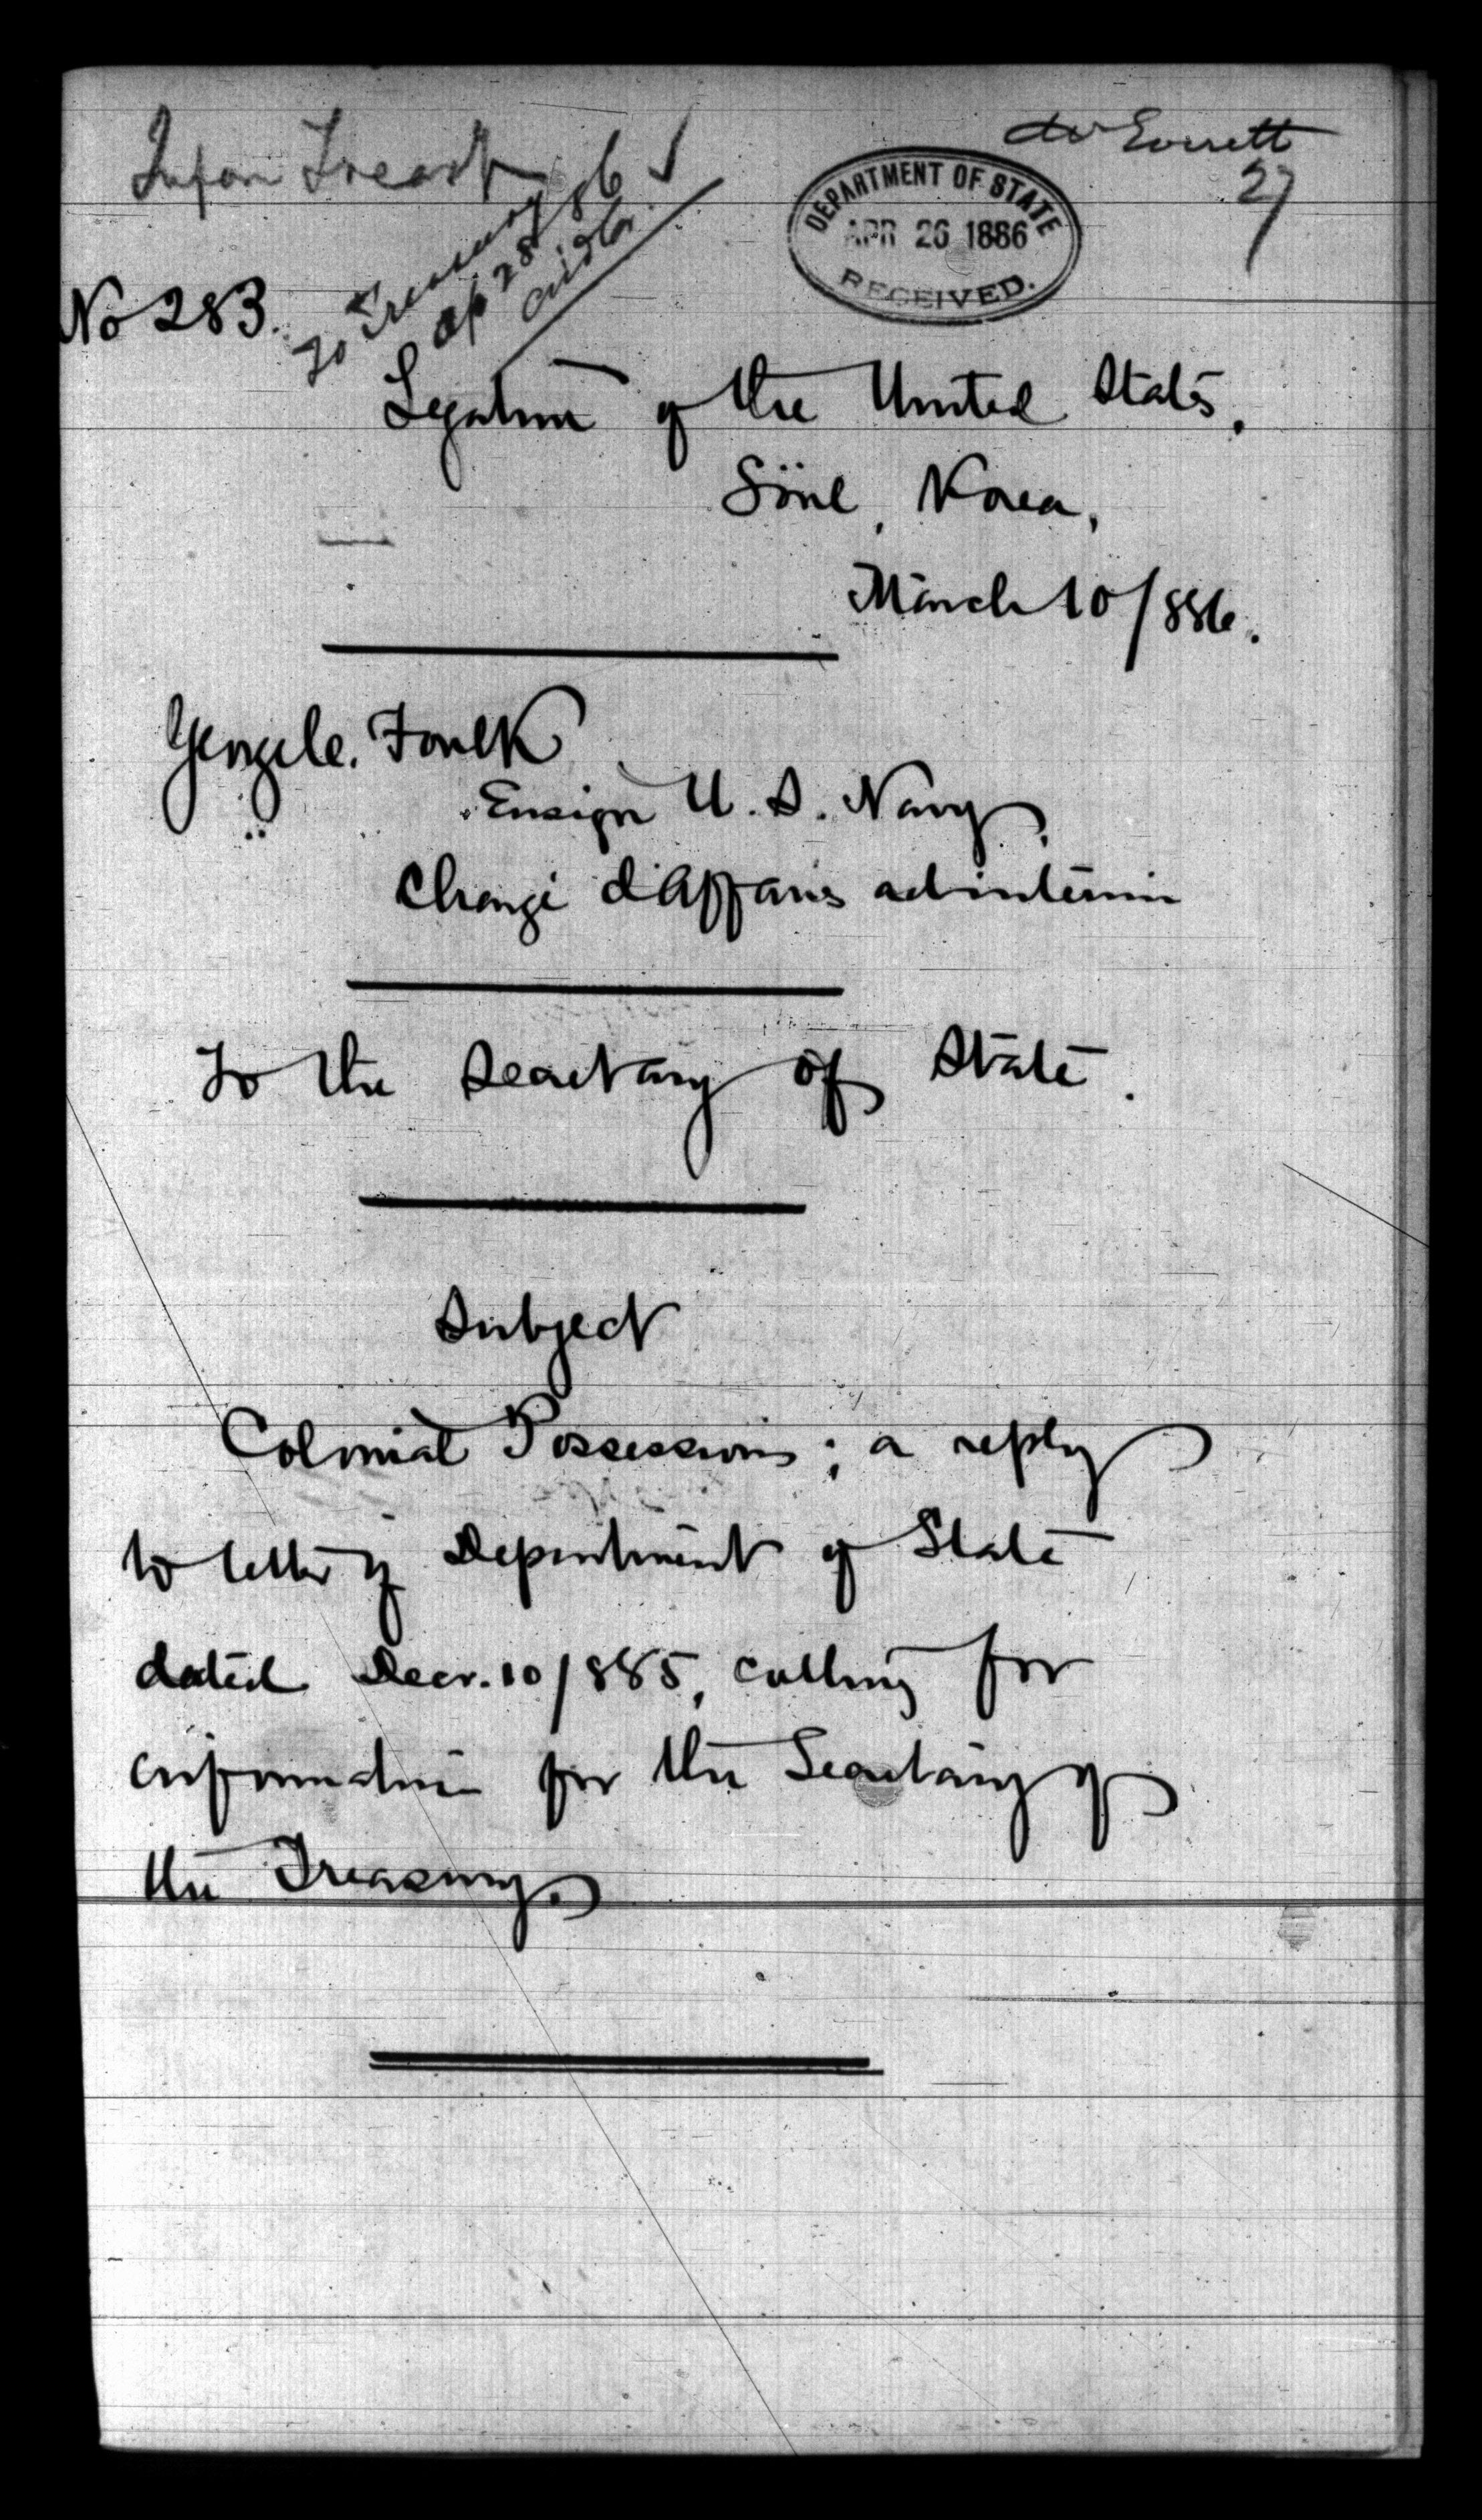 Inform Treasy
Mr Everett
27
To Treasury
Ap 28 86
DEPARTMENT OF STATE
APR 26 1886
RECEIVED.
No 283.
Legation of the United States,
Söul, Korea,
March 10/886.
George C. Foulk
Ensign U. S. Navy,
Chargé d'Affaires ad interim
To the Secretary of State.
Subject
Colonial Possessions; a reply
to letter of Department of State
dated Decr. 10/885, calling for
information for the Secretary of
the Treasury.